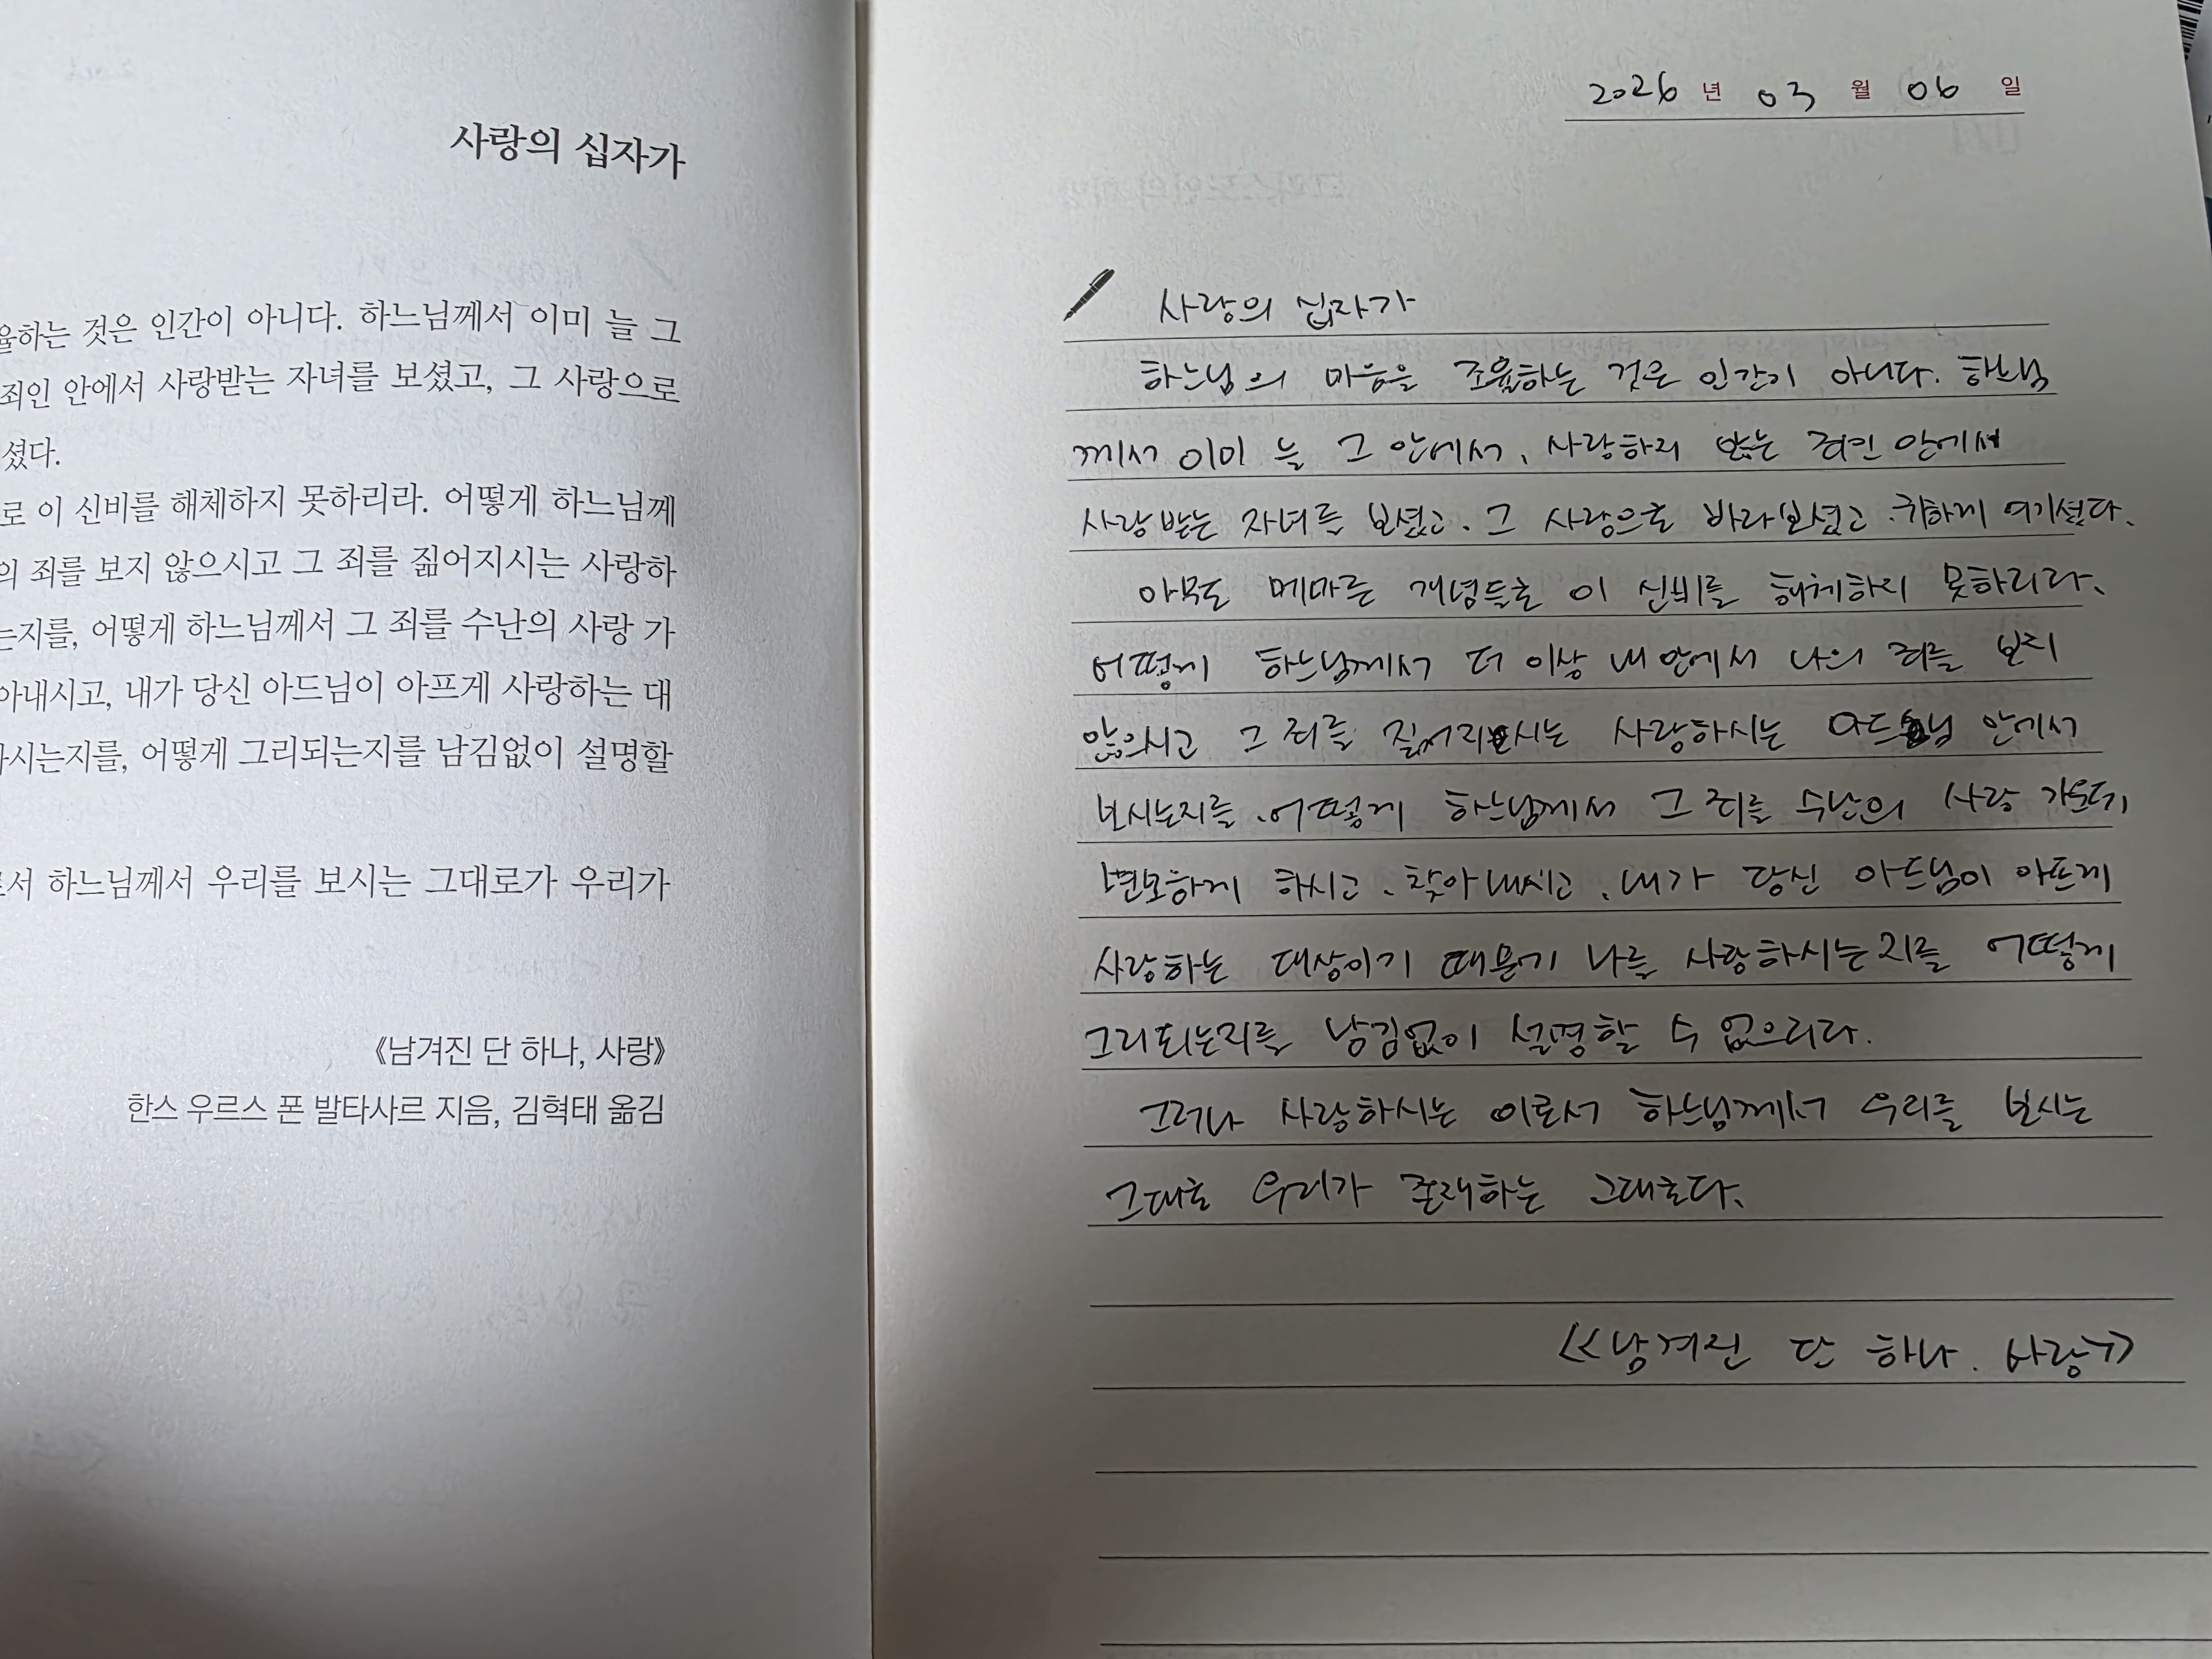 사랑의 십자가
율하는 것은 인간이 아니다. 하느님께서 이미 늘 그
죄인 안에서 사랑받는 자녀를 보셨고, 그 사랑으로
셨다.
로 이 신비를 해체하지 못하리라. 어떻게 하느님께
의 죄를 보지 않으시고 그 죄를 짊어지시는 사랑하
는지를, 어떻게 하느님께서 그 죄를 수난의 사랑 가
아내시고, 내가 당신 아드님이 아프게 사랑하는 대
하시는지를, 어떻게 그리되는지를 남김없이 설명할
로서 하느님께서 우리를 보시는 그대로가 우리가
《남겨진 단 하나, 사랑》
한스 우르스 폰 발타사르 지음, 김혁태 옮김
2026 년 03 월 06 일
사랑의 십자가
하느님의 마음을 조율하는 것은 인간이 아니다. 하느님
께서 이미 늘 그 안에서, 사랑하지 않는 죄인 안에서
사랑받는 자녀를 보셨고, 그 사랑으로 바라보셨고 귀하게 여기셨다.
아무도 메마른 개념들로 이 신비를 해체하지 못하리라.
어떻게 하느님께서 더 이상 내 안에서 나의 죄를 보지
않으시고 그 죄를 짊어지시는 사랑하시는 아드님 안에서
보시는지를, 어떻게 하느님께서 그 죄를 수난의 사랑 가운데
변모하게 하시고, 찾아내시고, 내가 당신 아드님이 아프게
사랑하는 대상이기 때문에 나를 사랑하시는지를 어떻게
그리되는지를 남김없이 설명할 수 없으리라.
그러나 사랑하시는 이로서 하느님께서 우리를 보시는
그대로 우리가 존재하는 그대로다.
<<남겨진 단 하나, 사랑>>